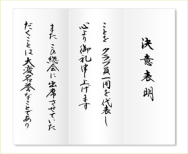 決意表明
ことを クラブ員一同を代表し
心より御礼申上げます
また この総会に出席させていた
だくことは 大変名誉なことであり